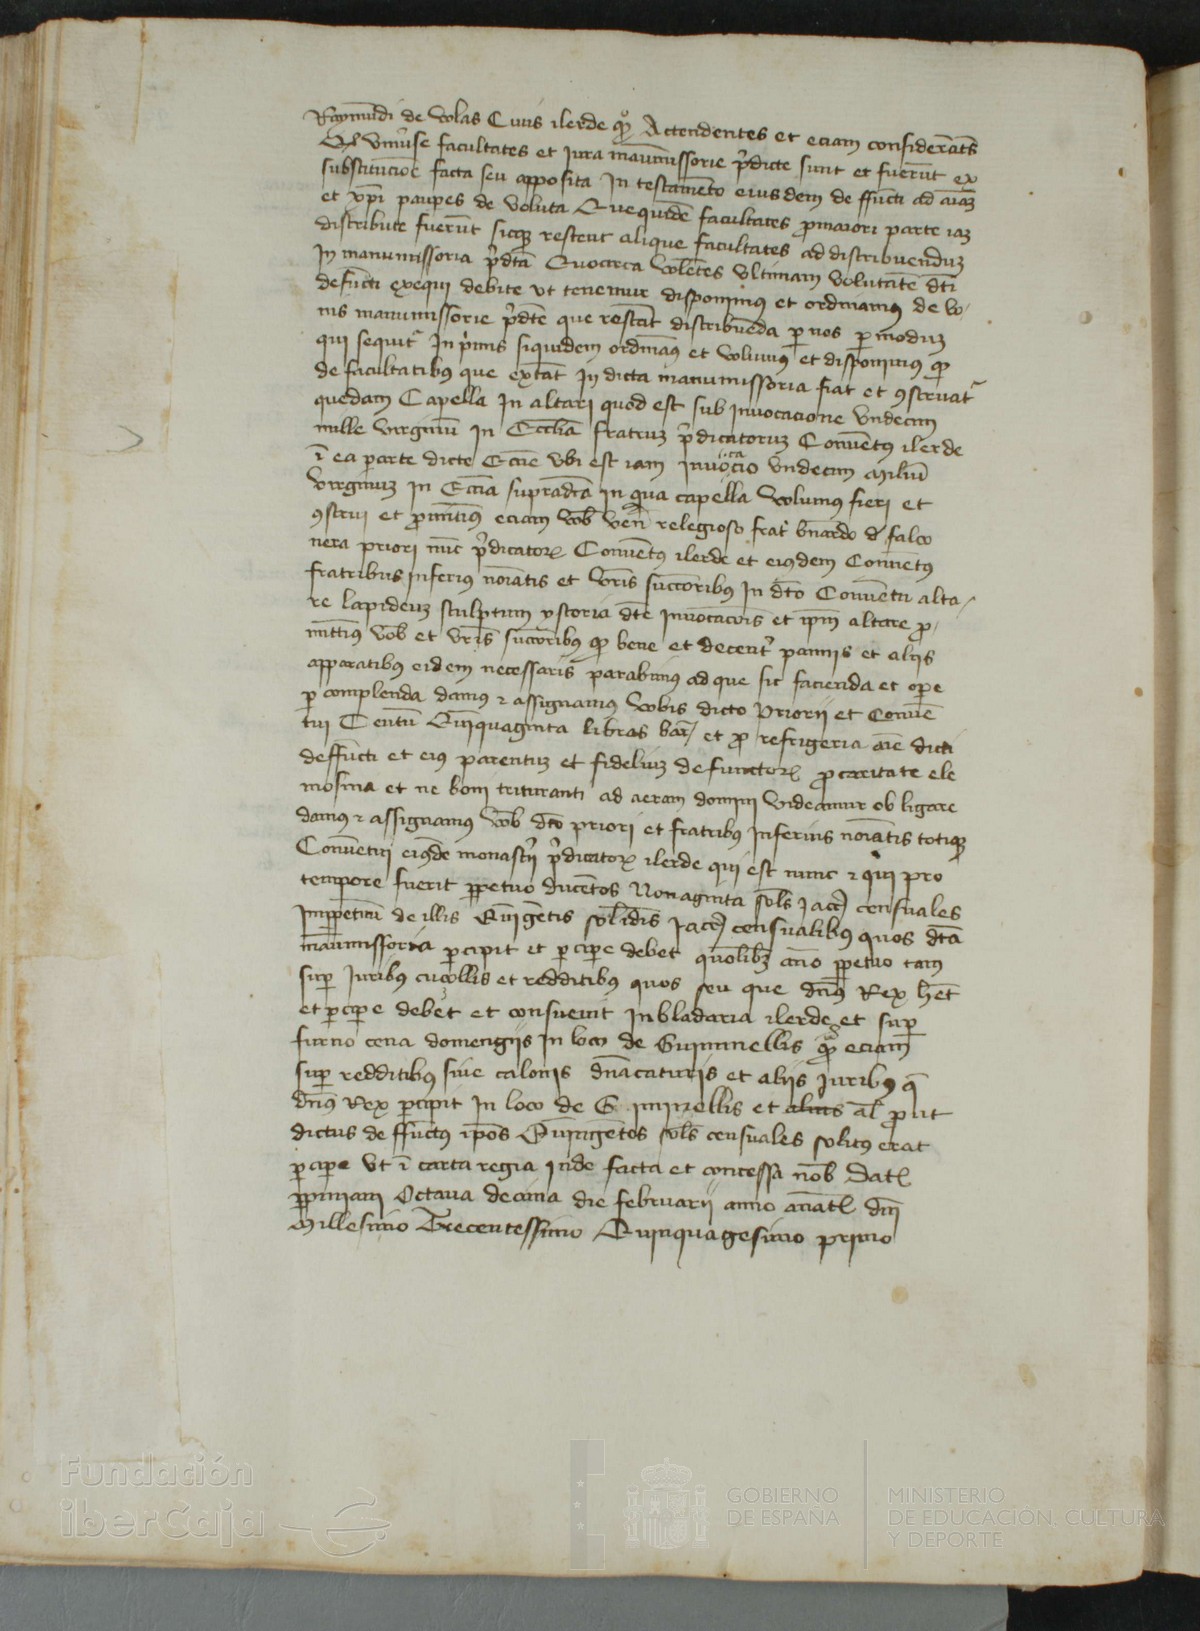 Raymundi de volas Civis ilerde qo Actendentes et eciam considerantes
Qd universe facultates et jura manumissorie predicte sunt et fuerunt ex
substitucione facta seu apposita In testamento eiusdem deffuncti ad aiam
et xpi paupes de voluta Quequidem facultates pro maiori parte iam
distribute fuerunt sicque restent alique facultates ad distribuendum
In manumissoria predta Quocirca volentes ultimam voluntatem dti
defuncti exequi debite ut tenemur disponimus et ordinamus de bo-
nis manumissorie predte que restant distribuenda per nos per modum
qui sequitr In primis siquidem ordinamus et volumus et disponimus quod
de facultatibus que extant In dicta manumissoria fiat et construatr
quedam Capella In altari quod est sub invocacione undecim
mille virginum In Ecclia fratrum predicatorum Conventus ilerde
i ea parte dicte Eccie ubi est iam Invocacio undecim milium
virginum In Eccia supradicta in qua capella volumus fieri et
construi et promittimus eciam vob ven relegioso fratri bnardo de falco
nera priori nunc predicatorum Conventus ilerde et eiusdem Conventus
fratribus inferius noiatis et vris successoribus In dto Conventu alta-
re lapideum sculptum ystoria dte invocacionis et ipm altare pro-
mittimus vob et vris successoribus quod bene et decenter pannis et aliis
apparatibus eidem necessariis parabimus ad que sic facienda et ope
re complenda damus et assignamus vobis dicto priorii et Conven
tui Centum Quinquaginta libras bar et pro refrigeria aie dicti
deffuncti et eius parentum et fidelium defunctorum pro caritate ele
mosina et ne bovi trituranti ad aeram domini videamur ob ligare
damus et assignamus vob dto priori et fratribus inferius noiatis totique
Conventui eiusde monasterii predicatorum ilerde qui est nunc et qui pro
tempore fuerit perpetuo ducentos Nonaginta sols Jacc censuales
Imperpetuum de illis Quingentis solidis Jacc censualibus quos dta
manumissoria percipit et percipere debet quolibet anno perpetuo tam
super Juribus cucollis et redditibus quos seu que dnus Rex het
et percipere debet et consuevit In bladaria ilerde et super
furno cena domengiis In loco de Guimnellis quam eciam
super redditibus sive calonis dnacaturis et aliis Juribus que
dnus Rex percipit In loco de G iminellis et aliis al prout
dictus deffunctus ipos Quingentos sols censuales solitus erat
percipere ut i carta regia inde facta et concessa nob Dat
perpiniani Octava decima die februarii anno a nat dni
Millesimo Trecentessimo Quinquagesimo primo
Fundación
iberCaja
GOBIERNO
DE ESPAÑA
MINISTERIO
DE EDUCACIÓN, CULTURA
Y DEPORTE